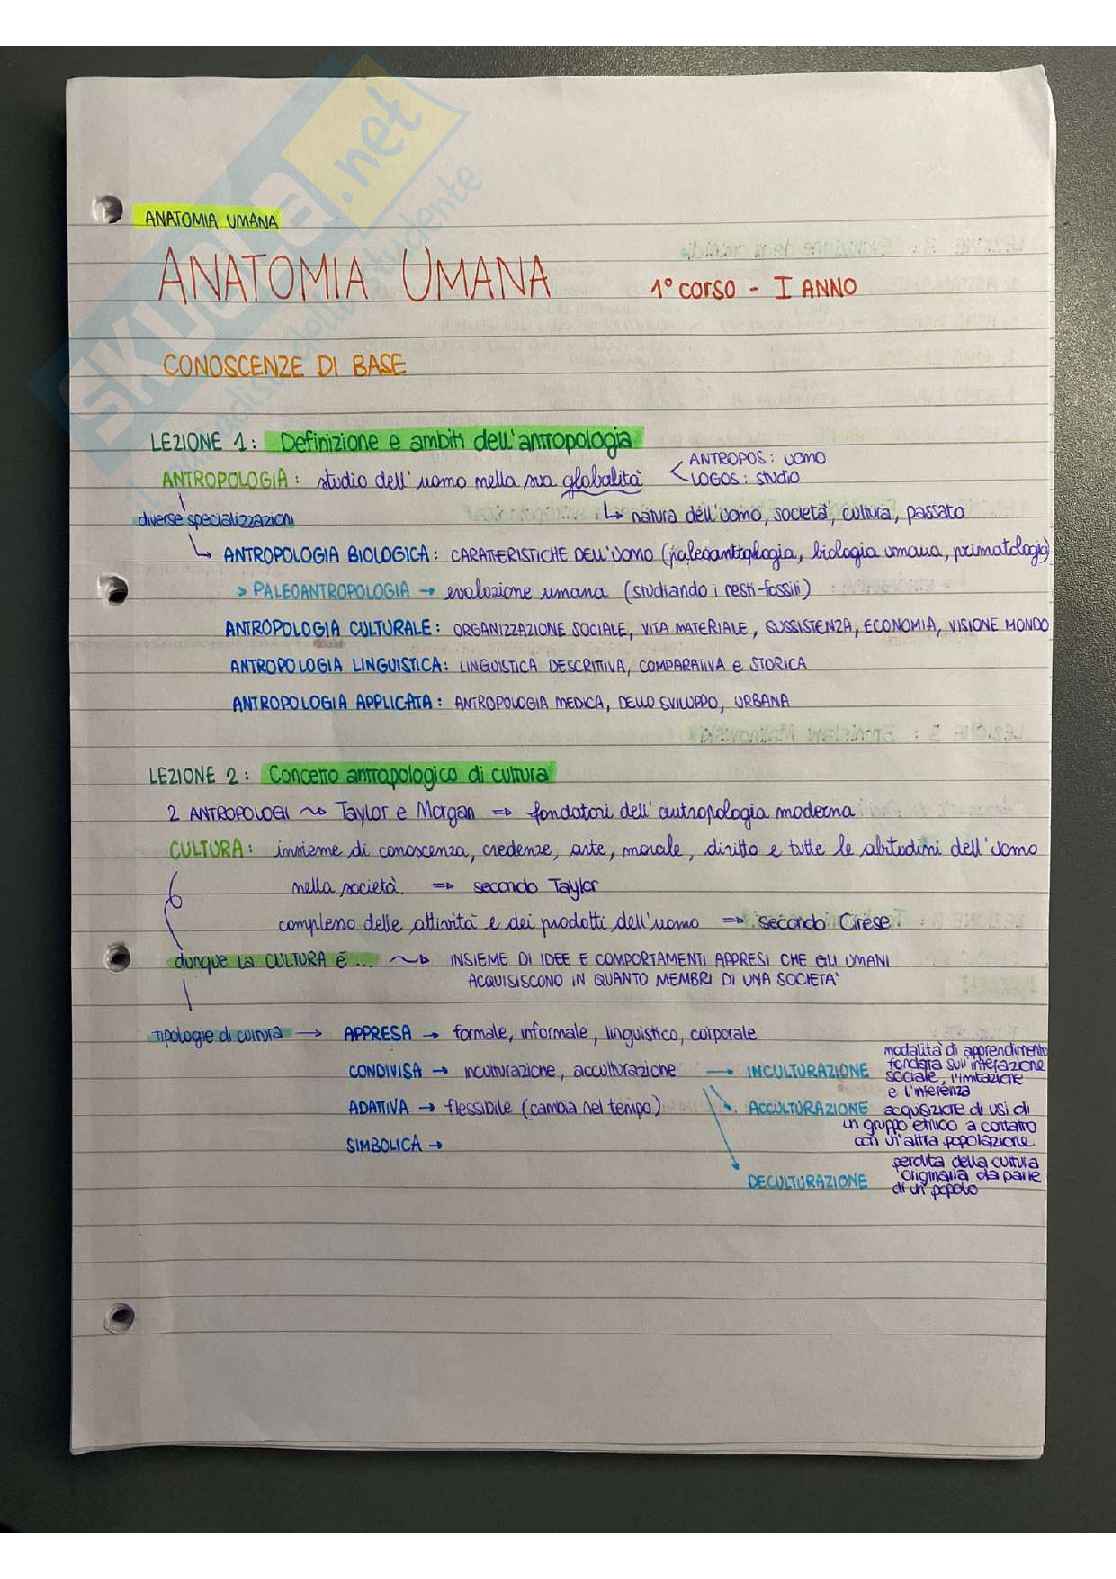 SKUOLA.net
ANATOMIA UMANA
ANATOMIA UMANA 1° CORSO - I ANNO
CONOSCENZE DI BASE
LEZIONE 1: Definizione e ambiti dell'antropologia
ANTROPOLOGIA: studio dell'uomo nella sua globalità
ANTROPOS: UOMO
LOGOS: STUDIO
diverse specializzazioni ↳ natura dell'uomo, società, cultura, passato
↳ ANTROPOLOGIA BIOLOGICA: CARATTERISTICHE DELL'UOMO (paleoantropologia, biologia umana, primatologia)
> PALEOANTROPOLOGIA → evoluzione umana (studiando i resti-fossili)
ANTROPOLOGIA CULTURALE: ORGANIZZAZIONE SOCIALE, VITA MATERIALE, SUSSISTENZA, ECONOMIA, VISIONE MONDO
ANTROPOLOGIA LINGUISTICA: LINGUISTICA DESCRITTIVA, COMPARATIVA e STORICA
ANTROPOLOGIA APPLICATA: ANTROPOLOGIA MEDICA, DELLO SVILUPPO, URBANA
LEZIONE 2: Concetto antropologico di cultura
2 ANTROPOLOGI ~> Taylor e Morgan => fondatori dell'antropologia moderna
CULTURA: insieme di conoscenza, credenze, arte, morale, diritto e tutte le abitudini dell'uomo
nella società => secondo Taylor
complesso delle attività e dei prodotti dell'uomo => secondo Cirese
dunque la CULTURA è ... ~> INSIEME DI IDEE E COMPORTAMENTI APPRESI CHE GLI UMANI
ACQUISISCONO IN QUANTO MEMBRI DI UNA SOCIETA'
tipologie di cultura → APPRESA → formale, informale, linguistico, corporale
CONDIVISA → inculturazione, acculturazione → INCULTURAZIONE modalità di apprendimento
fondata sull'interazione
sociale, l'imitazione
e l'inferenza
ADATTIVA → flessibile (cambia nel tempo) ACCULTURAZIONE acquisizione di usi di
un gruppo etnico a contatto
con un'altra popolazione
SIMBOLICA →
DECULTURAZIONE perdita della cultura
originaria da parte
di un popolo